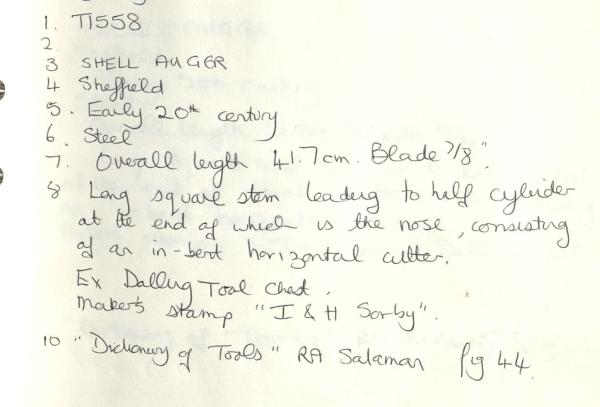 1. TI558
2.
3 SHELL AUGER
4 Sheffield
5. Early 20th century
6. Steel
7. Overall length 41.7cm. Blade 7/8".
8 Long square stem leading to half cylinder
at the end of which is the nose, consisting
of an in-bent horizontal cutter.
Ex Dalling Tool Chest.
Maker's stamp "I & H Sorby".
10 "Dictionary of Tools" RA Salaman fig 44.